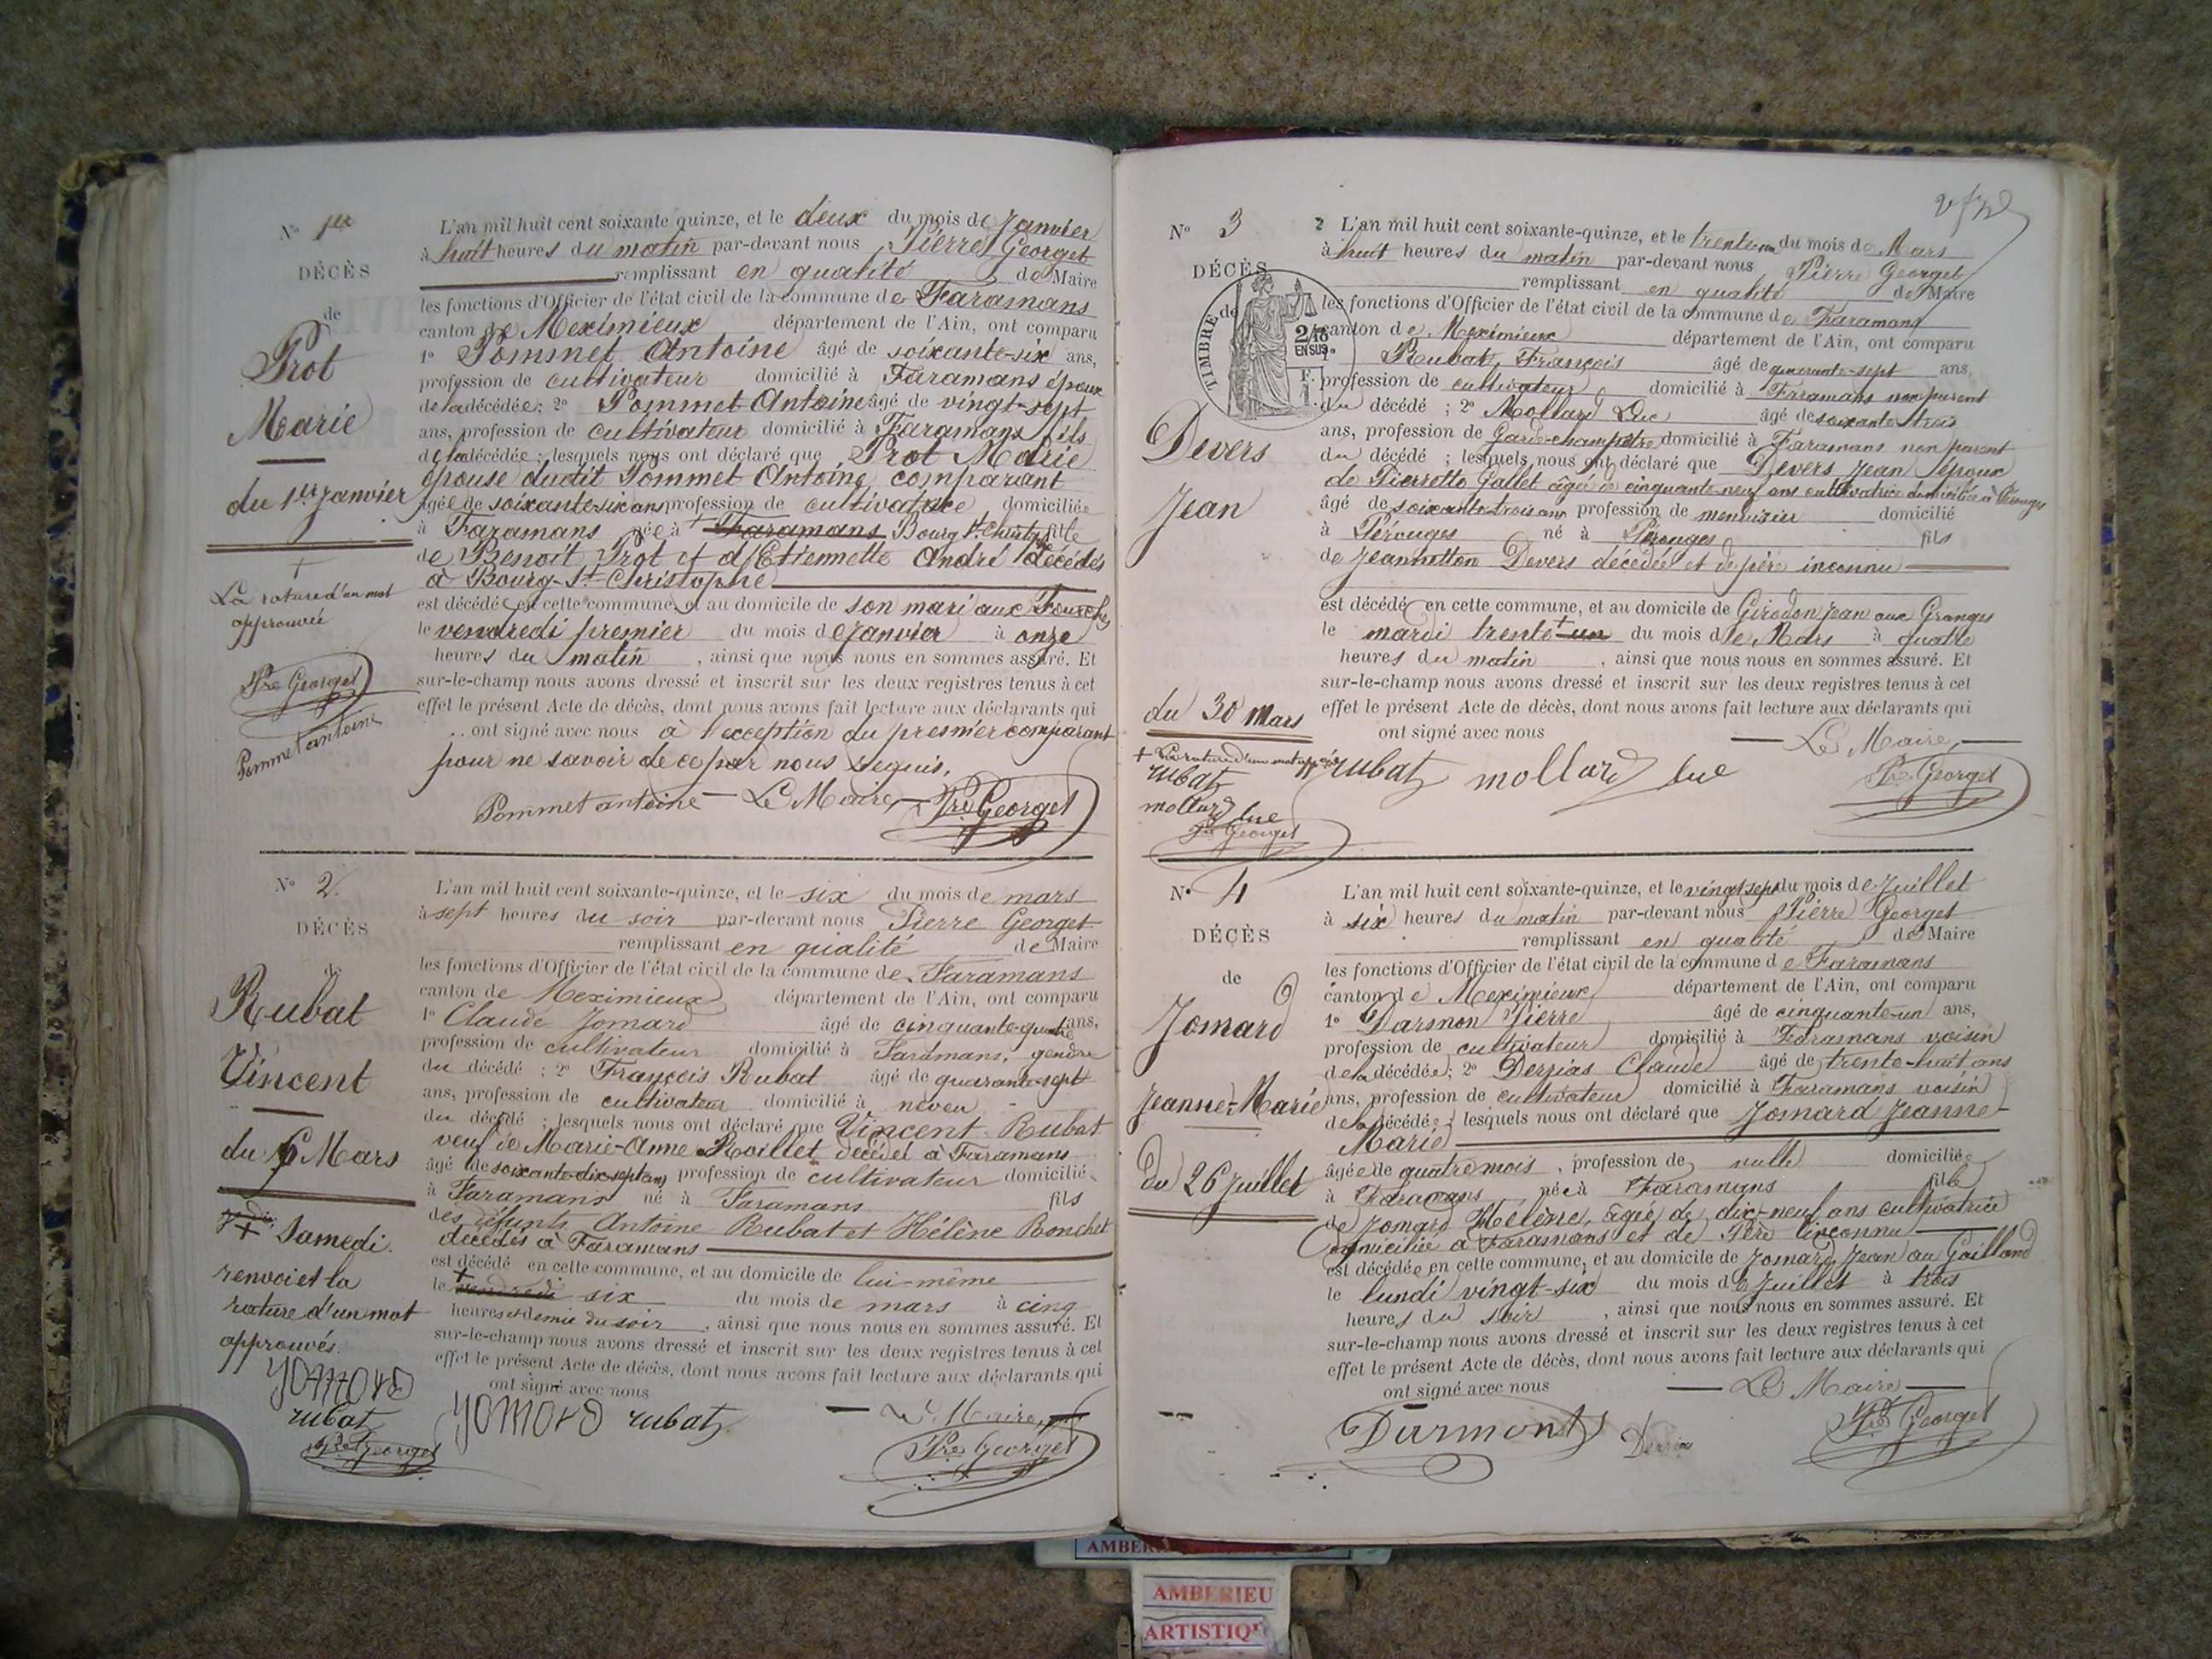 N° 1er
DÉCÈS
de
Prot
Marie
du 1er Janvier
+
La rature d'un mot
approuvée
Pre Georget
Pommet antoine
L'an mil huit cent soixante quinze, et le deux du mois de Janvier
à huit heures du matin par-devant nous Pierre Georget
remplissant en qualité de Maire
les fonctions d'Officier de l'état civil de la commune de Faramans
canton de Meximieux département de l'Ain, ont comparu
1° Pommet Antoine âgé de soixante-six ans,
profession de cultivateur domicilié à Faramans époux
de la décédée ; 2° Pommet Antoine âgé de vingt-sept
ans, profession de cultivateur domicilié à Faramans fils
de la décédée ; lesquels nous ont déclaré que Prot Marie
épouse dudit Pommet Antoine comparant
âgée de soixante-six ans profession de cultivatrice domiciliée
à Faramans née à + Faramans Bourg St. Christophe fille
de Benoit Prot et d'Etiennette André décédés
à Bourg-St-Christophe
est décédé en cette commune et au domicile de son mari aux Fourches
le vendredi premier du mois de janvier à onze
heures du matin , ainsi que nous nous en sommes assuré. Et
sur-le-champ nous avons dressé et inscrit sur les deux registres tenus à cet
effet le présent Acte de décès, dont nous avons fait lecture aux déclarants qui
ont signé avec nous à l'exception du premier comparant
pour ne savoir de ce par nous requis.
Pommet antoine — Le Maire, — Pre Georget
N° 2.
DÉCÈS
de
Rubat
Vincent
du 6 Mars
+ Samedi
renvoi et la
rature d'un mot
approuvés.
Jomard
rubat
Pre Georget
L'an mil huit cent soixante-quinze, et le six du mois de mars
à sept heures du soir par-devant nous Pierre Georget
remplissant en qualité de Maire
les fonctions d'Officier de l'état civil de la commune de Faramans
canton de Meximieux département de l'Ain, ont comparu
1° Claude Jomard âgé de cinquante-quatre ans,
profession de cultivateur domicilié à Faramans, gendre
du décédé ; 2° François Rubat âgé de quarante-sept
ans, profession de cultivateur domicilié à neveu
du décédé ; lesquels nous ont déclaré que Vincent Rubat
veuf de Marie-Anne Roillet décédée à Faramans
âgé de soixante-dix-sept ans profession de cultivateur domicilié
à Faramans né à Faramans fils
des défunts Antoine Rubat et Hélène Bonchet
décédés à Faramans
est décédé en cette commune, et au domicile de lui-même
le + vendredi six du mois de mars à cinq
heures et demie du soir , ainsi que nous nous en sommes assuré. Et
sur-le-champ nous avons dressé et inscrit sur les deux registres tenus à cet
effet le présent Acte de décès, dont nous avons fait lecture aux déclarants qui
ont signé avec nous
Jomard rubat — Le Maire,
Pre Georget
N° 3
DÉCÈS
de
TIMBRE
2/10
EN SUS
Devers
Jean
du 30 mars
+ La rature d'un mot
rubat
mollard luc
Pre Georget
L'an mil huit cent soixante-quinze, et le trente-un du mois de Mars
à huit heures du matin par-devant nous Pierre Georget
remplissant en qualité de Maire
les fonctions d'Officier de l'état civil de la commune de Faramans
canton de Meximieux département de l'Ain, ont comparu
1° Rubat, François âgé de quarante-sept ans,
profession de cultivateur domicilié à Faramans non parent
du décédé ; 2° Mollard Luc âgé de soixante trois
ans, profession de Garde-champêtre domicilié à Faramans non parent
du décédé ; lesquels nous ont déclaré que Devers Jean époux
de Pierrette Gallet âgée de cinquante-neuf ans cultivatrice domiciliée à Pérouges
âgé de soixante-trois ans profession de menuisier domicilié
à Pérouges né à Pérouges fils
de Jeannetton Devers décédée et de père inconnu
est décédé en cette commune, et au domicile de Girodon Jean aux Granges
le mardi trente + un du mois de Mars à quatre
heures du matin , ainsi que nous nous en sommes assuré. Et
sur-le-champ nous avons dressé et inscrit sur les deux registres tenus à cet
effet le présent Acte de décès, dont nous avons fait lecture aux déclarants qui
ont signé avec nous — Le Maire, —
rubat mollard luc Pre Georget
N° 4
DÉCÈS
de
Jomard
Jeanne-Marie
du 26 Juillet
L'an mil huit cent soixante-quinze, et le vingt sept du mois de Juillet
à six heures du matin par-devant nous Pierre Georget
remplissant en qualité de Maire
les fonctions d'Officier de l'état civil de la commune de Faramans
canton de Meximieux département de l'Ain, ont comparu
1° Darmon Pierre âgé de cinquante-un ans,
profession de cultivateur domicilié à Faramans voisin
de la décédée ; 2° Derrias Claude âgé de trente-huit ans
ans, profession de cultivateur domicilié à Faramans voisin
de la décédée ; lesquels nous ont déclaré que Jomard Jeanne-
Marie
âgée de quatre mois , profession de nulle domiciliée
à Faramans née à Faramans fille
de Jomard Hélène, âgée de dix-neuf ans cultivatrice
domiciliée à Faramans et de Père inconnu
est décédée en cette commune, et au domicile de Jomard Jean au Gailland
le lundi vingt-six du mois de Juillet à trois
heures du soir , ainsi que nous nous en sommes assuré. Et
sur-le-champ nous avons dressé et inscrit sur les deux registres tenus à cet
effet le présent Acte de décès, dont nous avons fait lecture aux déclarants qui
ont signé avec nous — Le Maire —
Darmont Derrias Pre Georget
AMBERIEU
ARTISTIQ